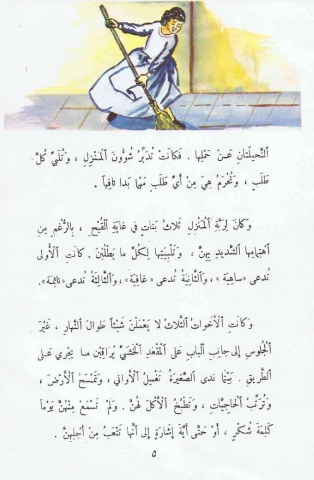 النَّحيلَتانِ عَنْ حَمْلِها . فَكانَتْ تُدَبِّرُ شُؤُونَ المَنْزِلِ ، وَتُلَبِّي كُلَّ
طَلَبٍ ، وَتُحْرَمُ هِيَ مِنْ أَيِّ طَلَبٍ مَهْما بَدا تافِهاً .
وَكانَ لِرَبَّةِ المَنْزِلِ ثَلاثُ بَناتٍ في غايَةِ القُبْحِ ، بِالرَّغْمِ مِنِ
اهْتِمامِها الشَّديدِ بِهِنَّ ، وَتَلْبِيَتِها لِكُلِّ ما يَطْلُبْنَ . كانَتِ الأُولى
تُدعى « ساهِيَة » ، وَالثّانِيَةُ تُدعى « غافِيَة » ، وَالثّالِثَةُ تُدعى « نائِمَة » .
وَكانَتِ الأَخَواتُ الثَّلاثُ لا يَعْمَلْنَ شَيْئاً طَوالَ النَّهارِ ، غَيْرَ
الجُلوسِ إِلى جانِبِ البابِ عَلى المَقْعَدِ الخَشَبِيِّ يُراقِبْنَ ما يَجْري عَلى
الطَّريقِ . بَيْنَما نَدى الصَّغيرَةُ تَغْسِلُ الأَواني ، وَتَمْسَحُ الأَرْضَ ،
وَتُرَتِّبُ الحاجِيّاتِ ، وَتَطْبُخُ الأَكْلَ لَهُنَّ . وَلَمْ تَسْمَعْ مِنْهُنَّ يَوْماً
كَلِمَةَ شُكْرٍ ، أَوْ حَتّى أَيَّةَ إِشارَةٍ إِلى أَنَّها تَتْعَبُ مِنْ أَجْلِهِنَّ .
٥